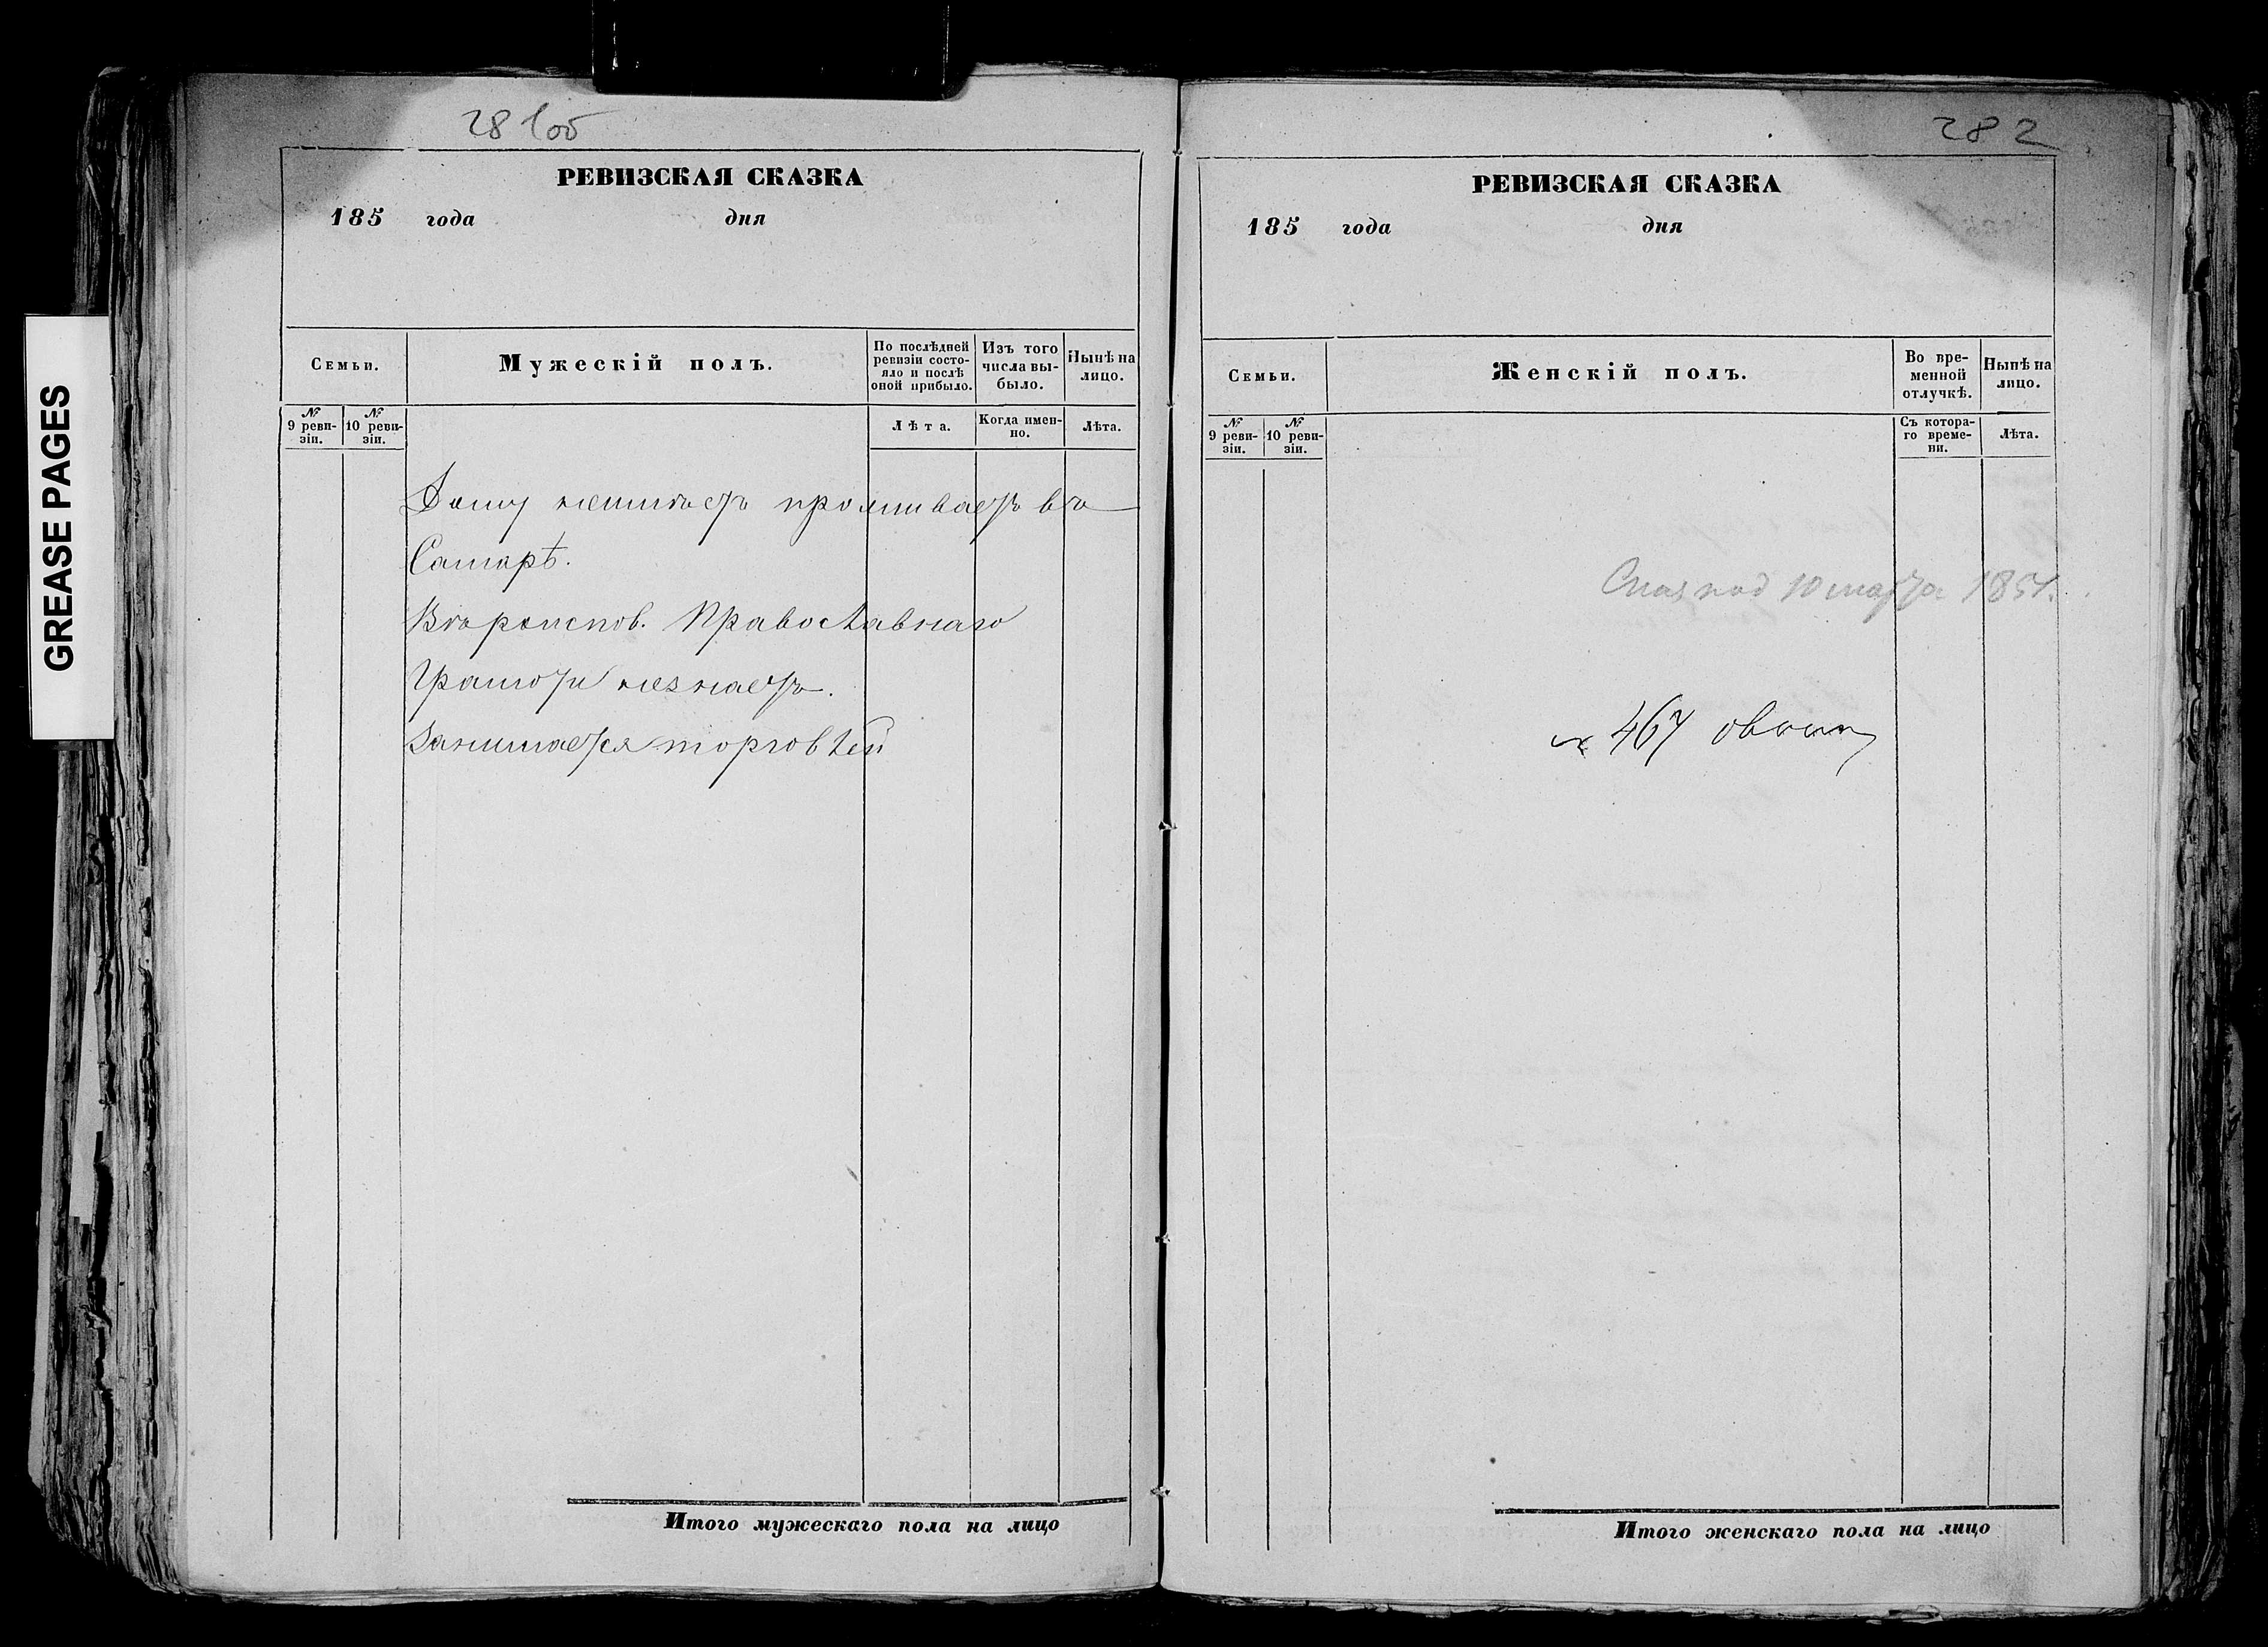 GREASE PAGES
281об
РЕВИЗСКАЯ СКАЗКА
185 года дня
Семьи.
Мужескій полъ.
По послѣдней ревизіи состо-
яло и послѣ
оной прибыло.
Изъ того
числа вы-
было.
Нынѣ на
лицо.
№
9 реви-
зіи.
№
10 реви-
зіи.
Лѣта.
Когда имен-
но.
Лѣта.
Дому неимѣетъ проживаетъ въ
Самарѣ.
Вѣроиспов. Православнаго
Грамоти незнаетъ.
Занимается торговлей
Итого мужескаго пола на лицо
282
РЕВИЗСКАЯ СКАЗКА
185 года дня
Семьи.
Женскій полъ.
Во вре-
менной
отлучкѣ.
Нынѣ на
лицо.
№
9 реви-
зіи.
№
10 реви-
зіи.
Съ котора-
го време-
ни.
Лѣта.
10 марта 185
467
Итого женскаго пола на лицо